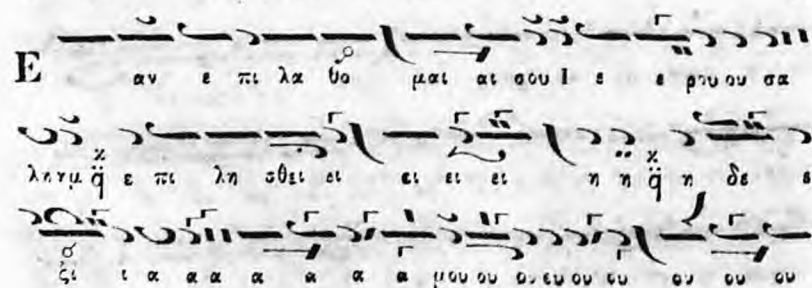 Ε αν ε πι λα θο μαι αι σου Ι ε ε ρου ου σα
λημ ε πι λη σθει ει ει ει ει η η η δε ε
ξι ι α α α α α α α μου ου ου ου ου ου ου ου ου